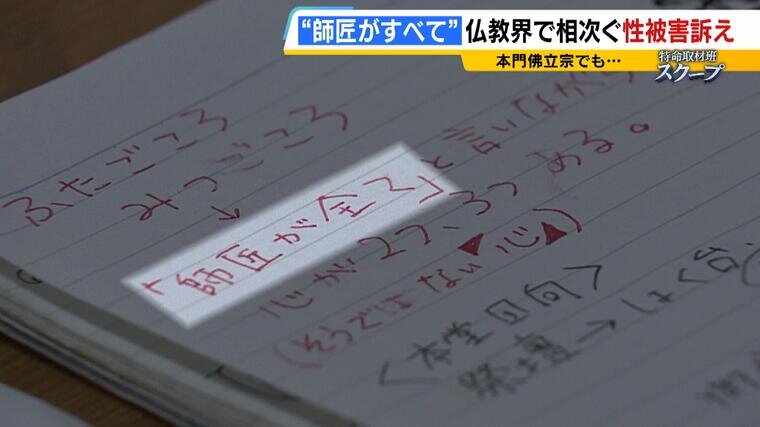 “師匠がすべて”仏教界で相次ぐ性被害訴え
本門佛立宗でも…
特命取材班
スクープ
ふたごころ
みつごころ
↓
「師匠が全て」と言いながら
心が2つ、3つある。
(そうではない心)
＜本堂日向＞
祭壇→ほく台